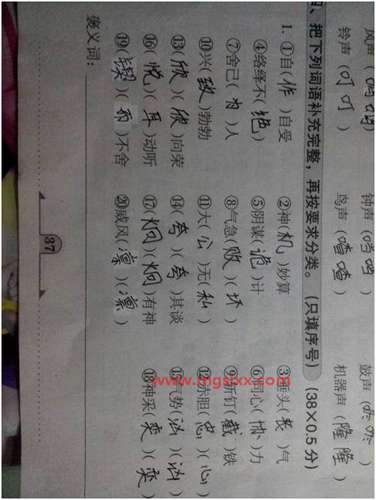 风声（呜呜） 钟声（
铃声（叮叮） 鸟声（喳喳） 机器声（隆隆）
、把下列词语补充完整，再按要求分类。（只填序号）（38×0.5分）
1. ①自（作）自受 ②神（机）妙算 ③垂头（丧）气
④络绎不（绝） ⑤阴谋（诡）计 ⑥同心（协）力
⑦舍己（为）人 ⑧气急（败）（坏） ⑨斩钉（截）铁
⑩兴（致）勃勃 ⑪大（公）无（私） ⑫赤胆（忠）（心）
⑬（欣）（欣）向荣 ⑭（夸）（夸）其谈 ⑮气势（汹）（汹）
⑯（悦）（耳）动听 ⑰（炯）（炯）有神 ⑱神采（奕）（奕）
⑲（锲）（而）不舍 ⑳威风（凛）（凛）
褒义词：
37